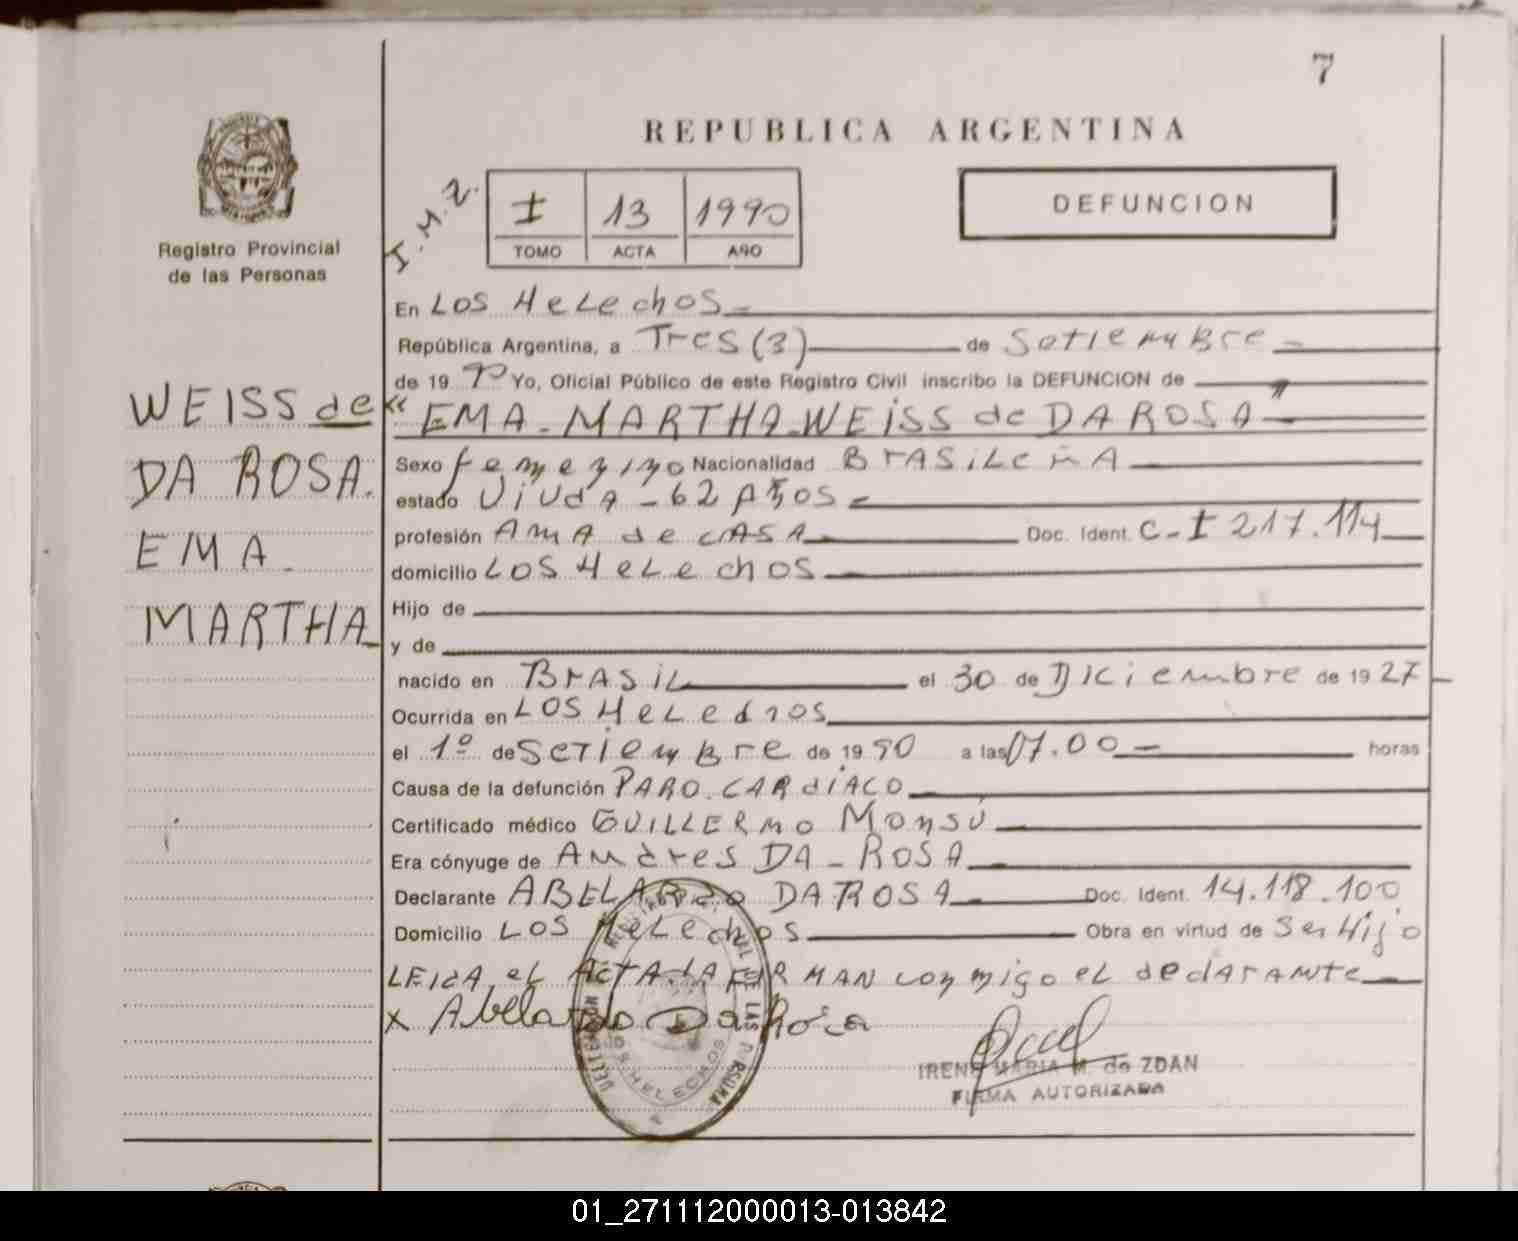 7
REPUBLICA ARGENTINA
Registro Provincial
de las Personas
I.M.2.
I 13 1990
TOMO ACTA AÑO
DEFUNCION
WEISS de
DA ROSA.
EMA
MARTHA
En LOS HeLechos
República Argentina, a Tres (3) de Setiembre
de 19 90 Yo, Oficial Público de este Registro Civil inscribo la DEFUNCION de
"EMA MARTHA WEiSS de DA ROSA"
Sexo femenino Nacionalidad BrASiLeñA
estado Viuda - 62 Años
profesión AmA de CASA Doc. Ident. C-I 217.114
domicilio LOS HeLechos
Hijo de
y de
nacido en BrASiL el 30 de Diciembre de 19 27
Ocurrida en LOS HeLechos
el 1º de Setiembre de 19 90 a las 07.00 horas
Causa de la defunción PARO CARdiACO
Certificado médico GUILLERMO Monsú
Era cónyuge de Andres DA-ROSA
Declarante ABELARDO DA ROSA Doc. Ident. 14.118.100
Domicilio LOS HeLechos Obra en virtud de Ser Hijo
LEIdA eL ACTA LA FIRMAN conmigo eL declArAnte
x Abelardo Da Rosa
IRENE MARIA M. de ZDAN
FIRMA AUTORIZADA
LOS HELECHOS
01_271112000013-013842